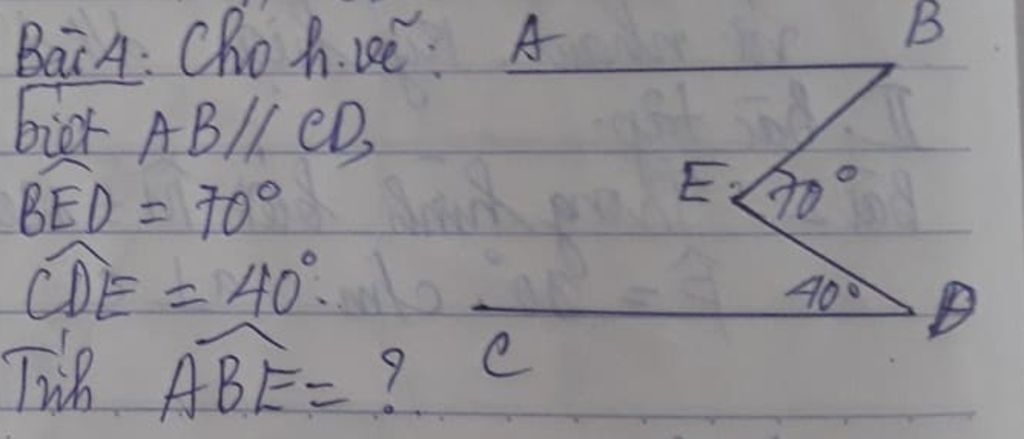 Bài 4: Cho h.vẽ:
biết AB // CD,
BED = 70°
CDE = 40°.
Tính ABE = ?
A
B
E
70°
40°
D
C